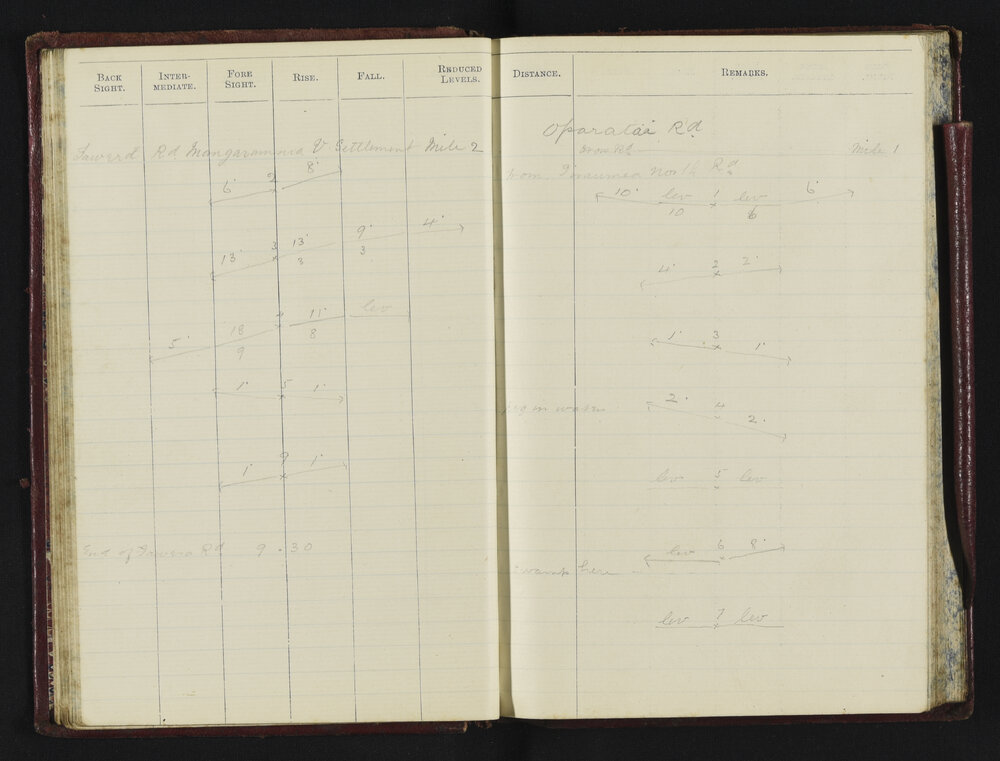 BACK SIGHT. INTER-MEDIATE. FORE SIGHT. RISE. FALL. REDUCED LEVELS.
Rd Mangaramma V Settlement Mile 2
6° 2 8°
13° 3 13° 9° 4°
3 3
5° 18 11° lev
9 8
1° 5 1°
1° 9 1°
End of Rd 9.30
DISTANCE. REMARKS.
Oparatai Rd
Mile 1
from North Rd
10° lev 1 lev 6°
10 6
4° 2 2°
1° 3 1°
2° 4 2°
lev 5 lev
lev 6 8°
here
lev 7 lev